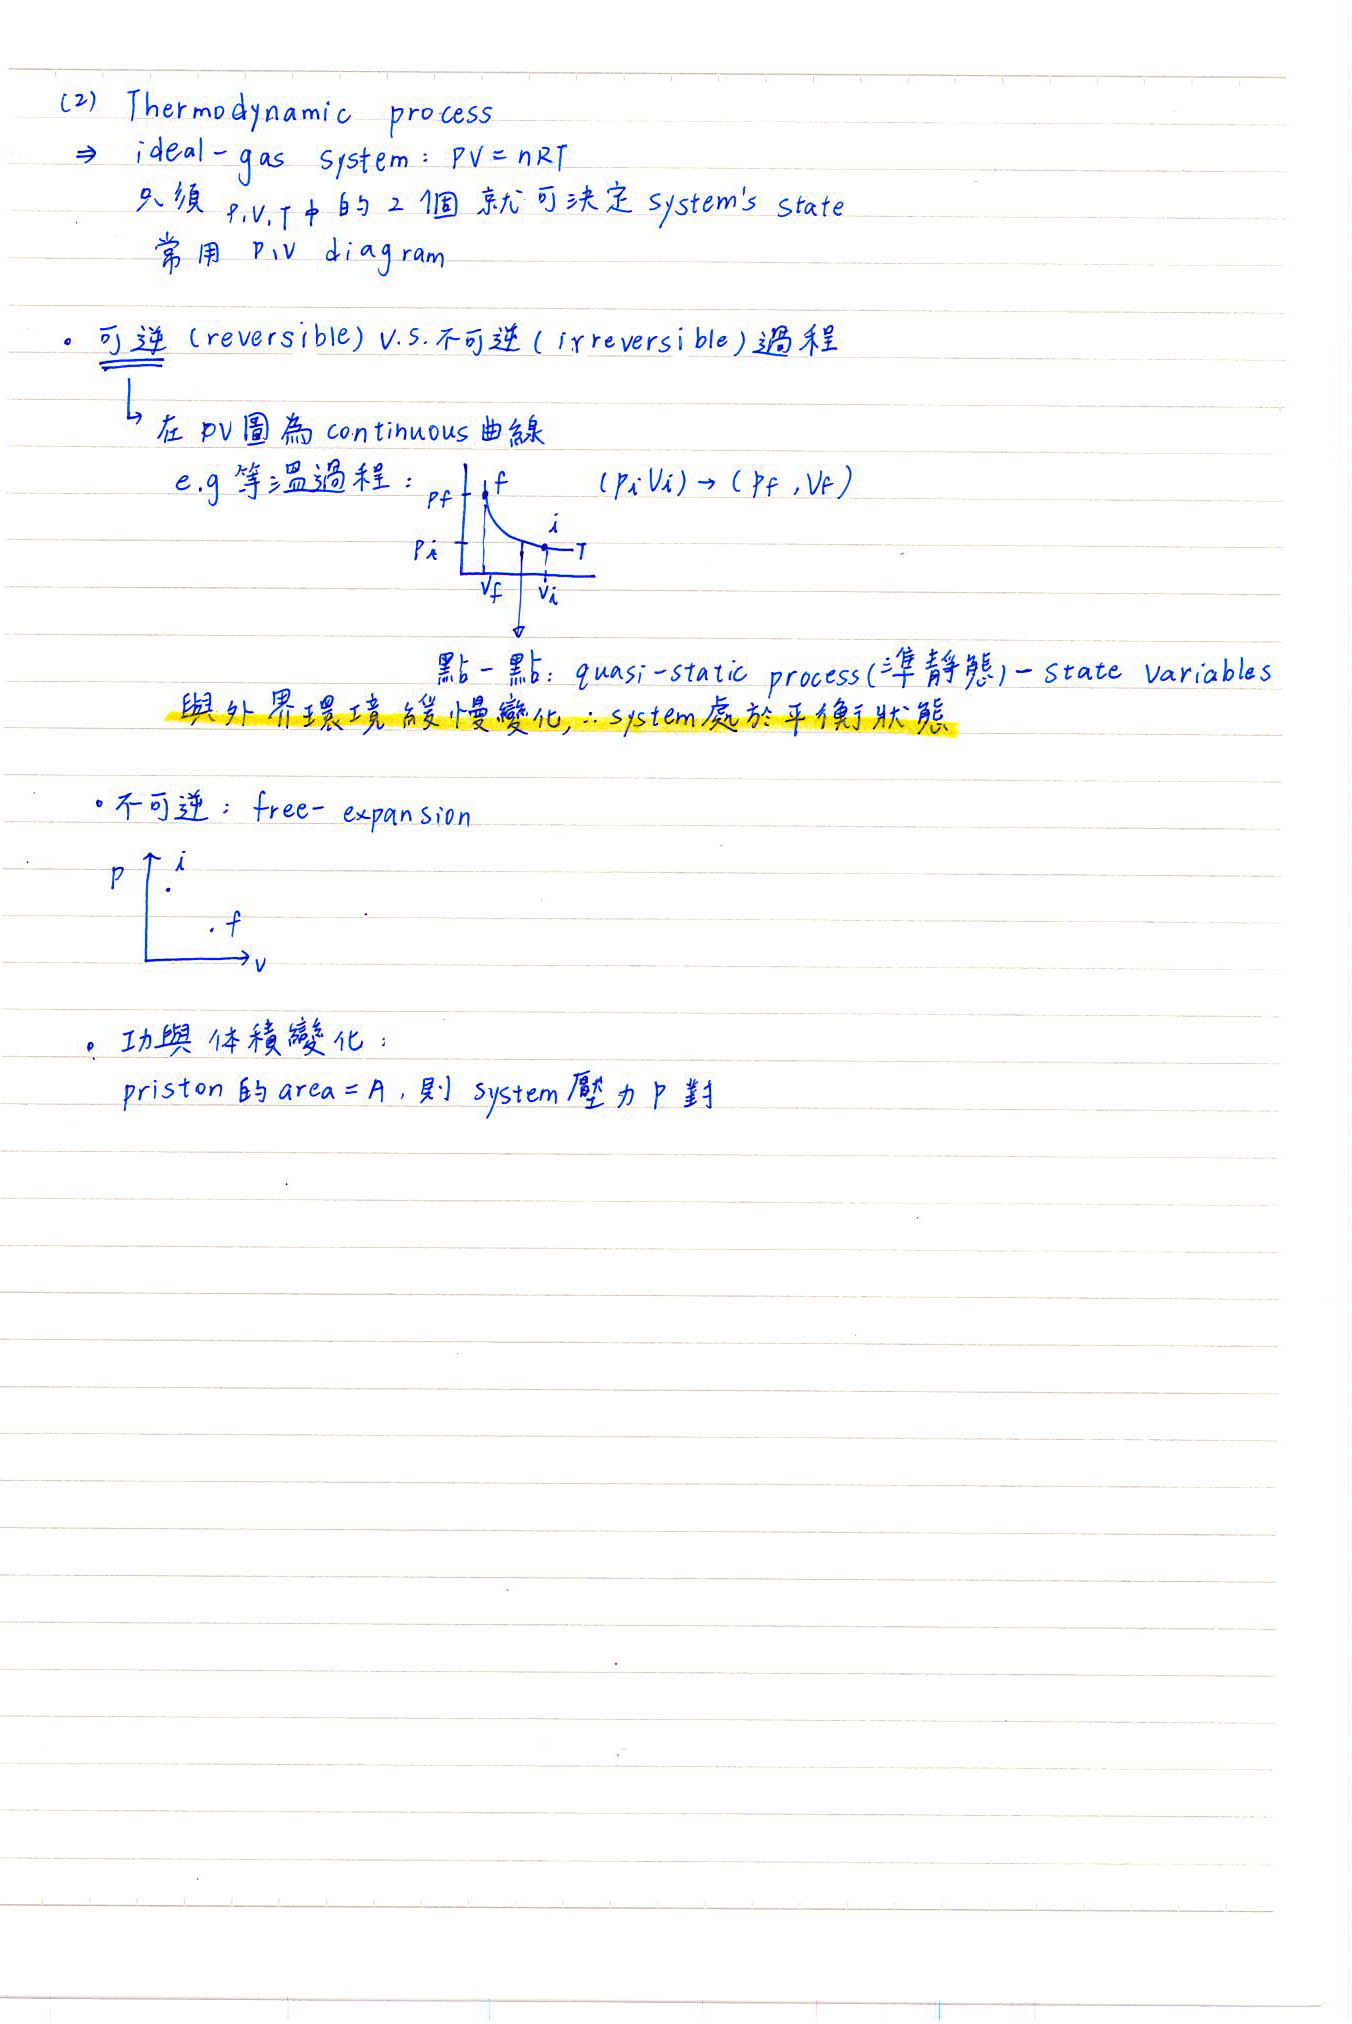 (2) Thermodynamic process
⇒ ideal-gas system: PV=nRT
只須 P,V,T中的2個就可決定 system's state
常用 P,V diagram
• 可逆 (reversible) v.s. 不可逆 (irreversible) 過程
↳ 在 PV圖為 continuous 曲線
e.g 等溫過程: (Pi Vi) → (Pf, Vf)
Pf f
i
Pi T
Vf Vi
點一點: quasi-static process(準靜態) - state variables
與外界環境緩慢變化, ∴ system處於平衡狀態
• 不可逆: free-expansion
P i
f
V
• 功與体積變化:
priston 的 area = A, 則 system壓力 P 對